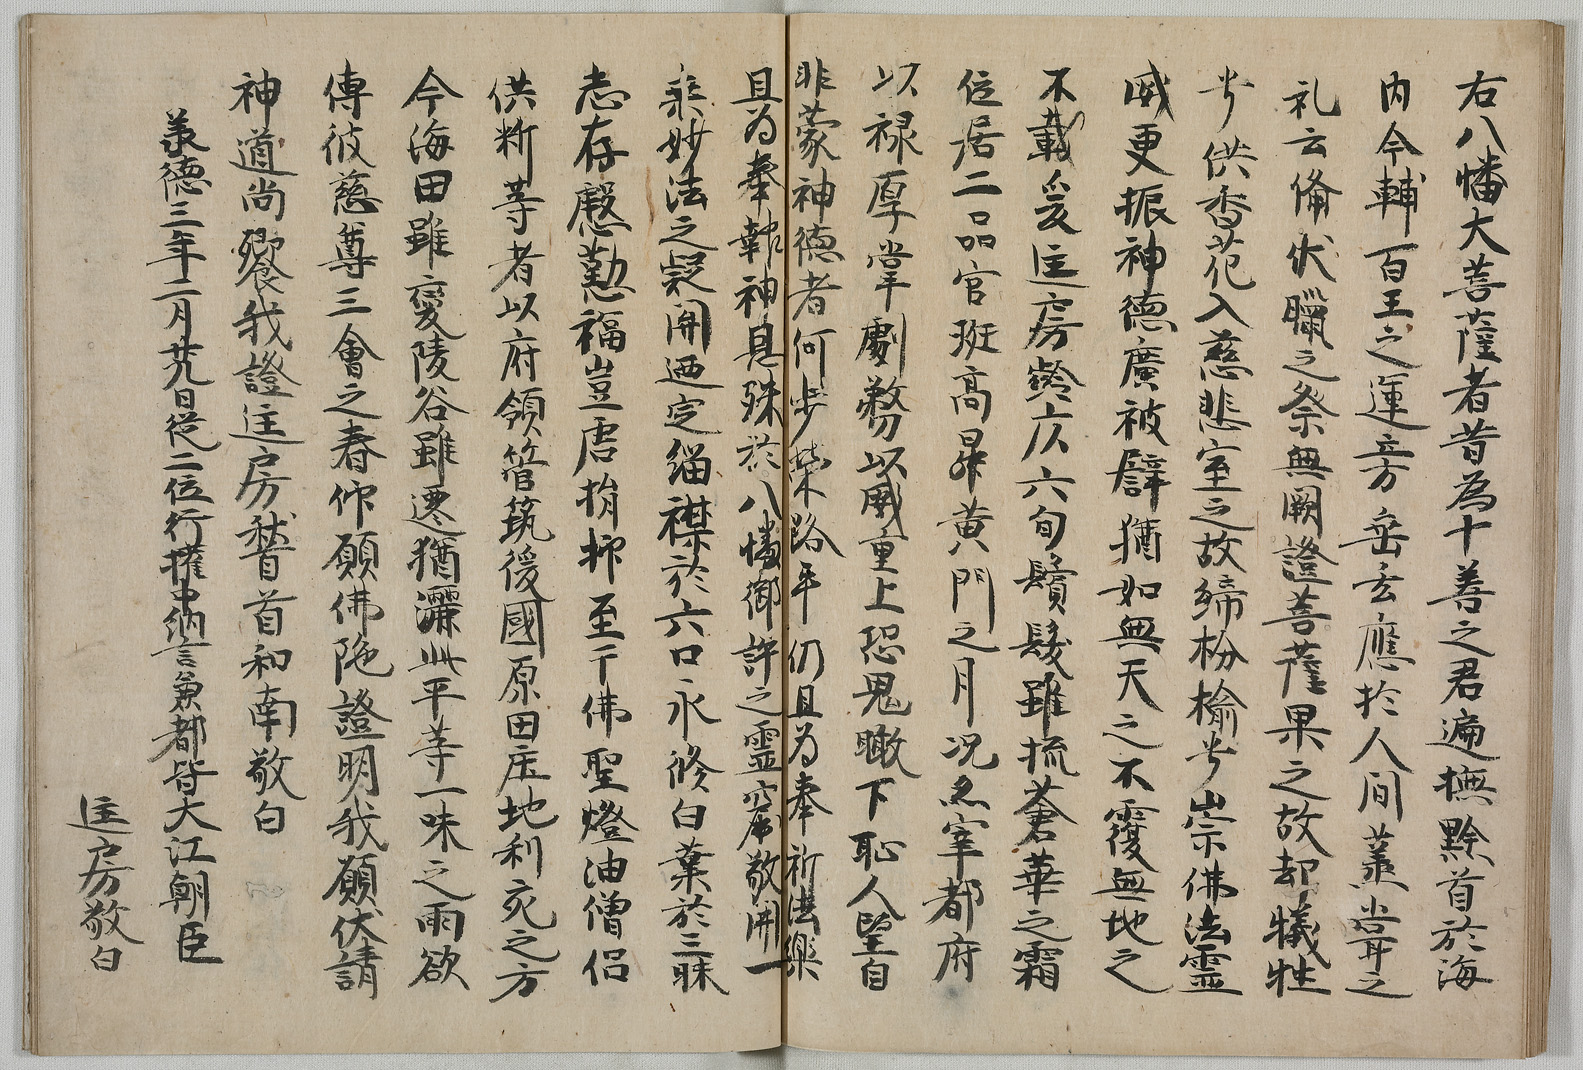 右八幡大菩薩者昔為十善之君遍撫黔首於海
内今輔百王之運旁垂玄應於人間蒸甞之
礼云備伏臘之祭無闕證菩薩果之故却犧牲
兮供香花入慈悲室之故締枌楡兮崇佛法靈
威更振神德廣被譬猶如無天之不覆無地之
不載爰匡房齡広六旬鬢髮雖梳蒼華之霜
位居二品官班高昇黄門之月况忝宰都府
以禄厚掌劇務以威重上恐鬼瞰下恥人望自
非蒙神德者何步榮路乎仍且為奉祈法樂
且為奉報神恩殊於八幡御許之靈窟敬開一
乘妙法之凝開迺定緇襟於六口永修白葉於三昧
志存慇懃福豈唐捐抑至于佛聖燈油僧侣
供断等者以府領管筑後國原田庄地利宛之方
今海田雖變陵谷雖遷猶灑此平等一味之雨欲
傳彼慈尊三會之春仰願佛陁證明我願伏請
神道尚饗我證匡房稽首和南敬白
羕德三年二月廿九日從二位行權中納言兼都督大江朝臣
匡房敬白